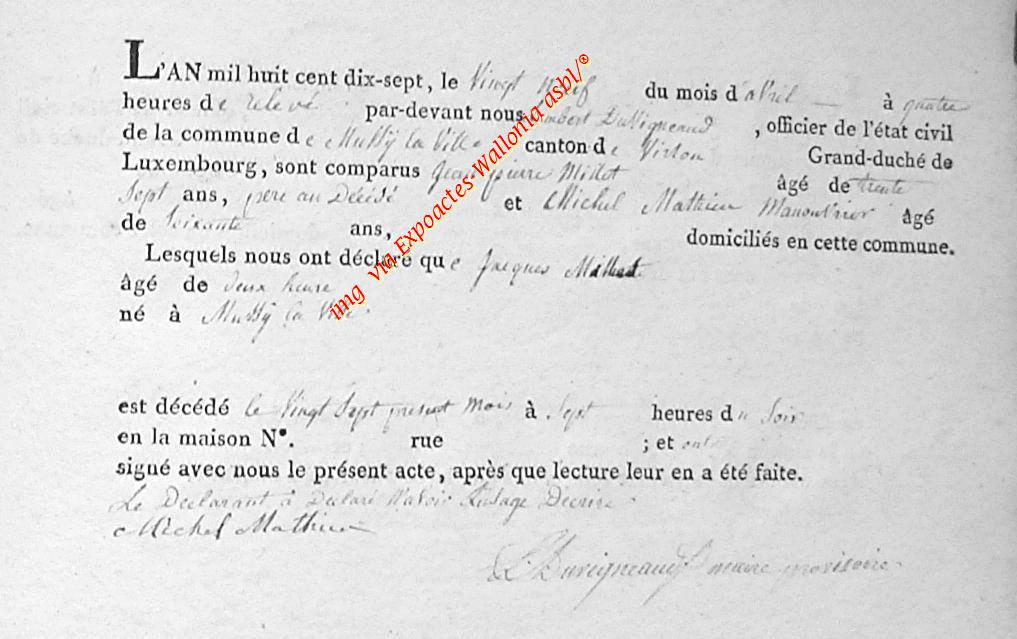 L'AN mil huit cent dix-sept, le Vingt neuf du mois d'avril à quatre
heures de relevé par-devant nous Lambert Duvigneaud, officier de l'état civil
de la commune de Mussy la Ville canton de Virton Grand-duché de
Luxembourg, sont comparus Jean pierre Millet âgé de trente
Sept ans, pere au Décédé et Michel Mathieu Manouvrier âgé
de Soixante ans, domiciliés en cette commune.
Lesquels nous ont déclaré que Jacques Millet
âgé de deux heure
né à Mussy la Ville.
est décédé le Vingt Sept present mois à Sept heures du Soir
en la maison N°. rue ; et ont
signé avec nous le présent acte, après que lecture leur en a été faite.
Le Declarant à Declaré N'avoir L'usage Decrire.
Michel Mathieu
L. Duvigneaud maire provisoire.
img via Expoactes-Wallonia asbl/®